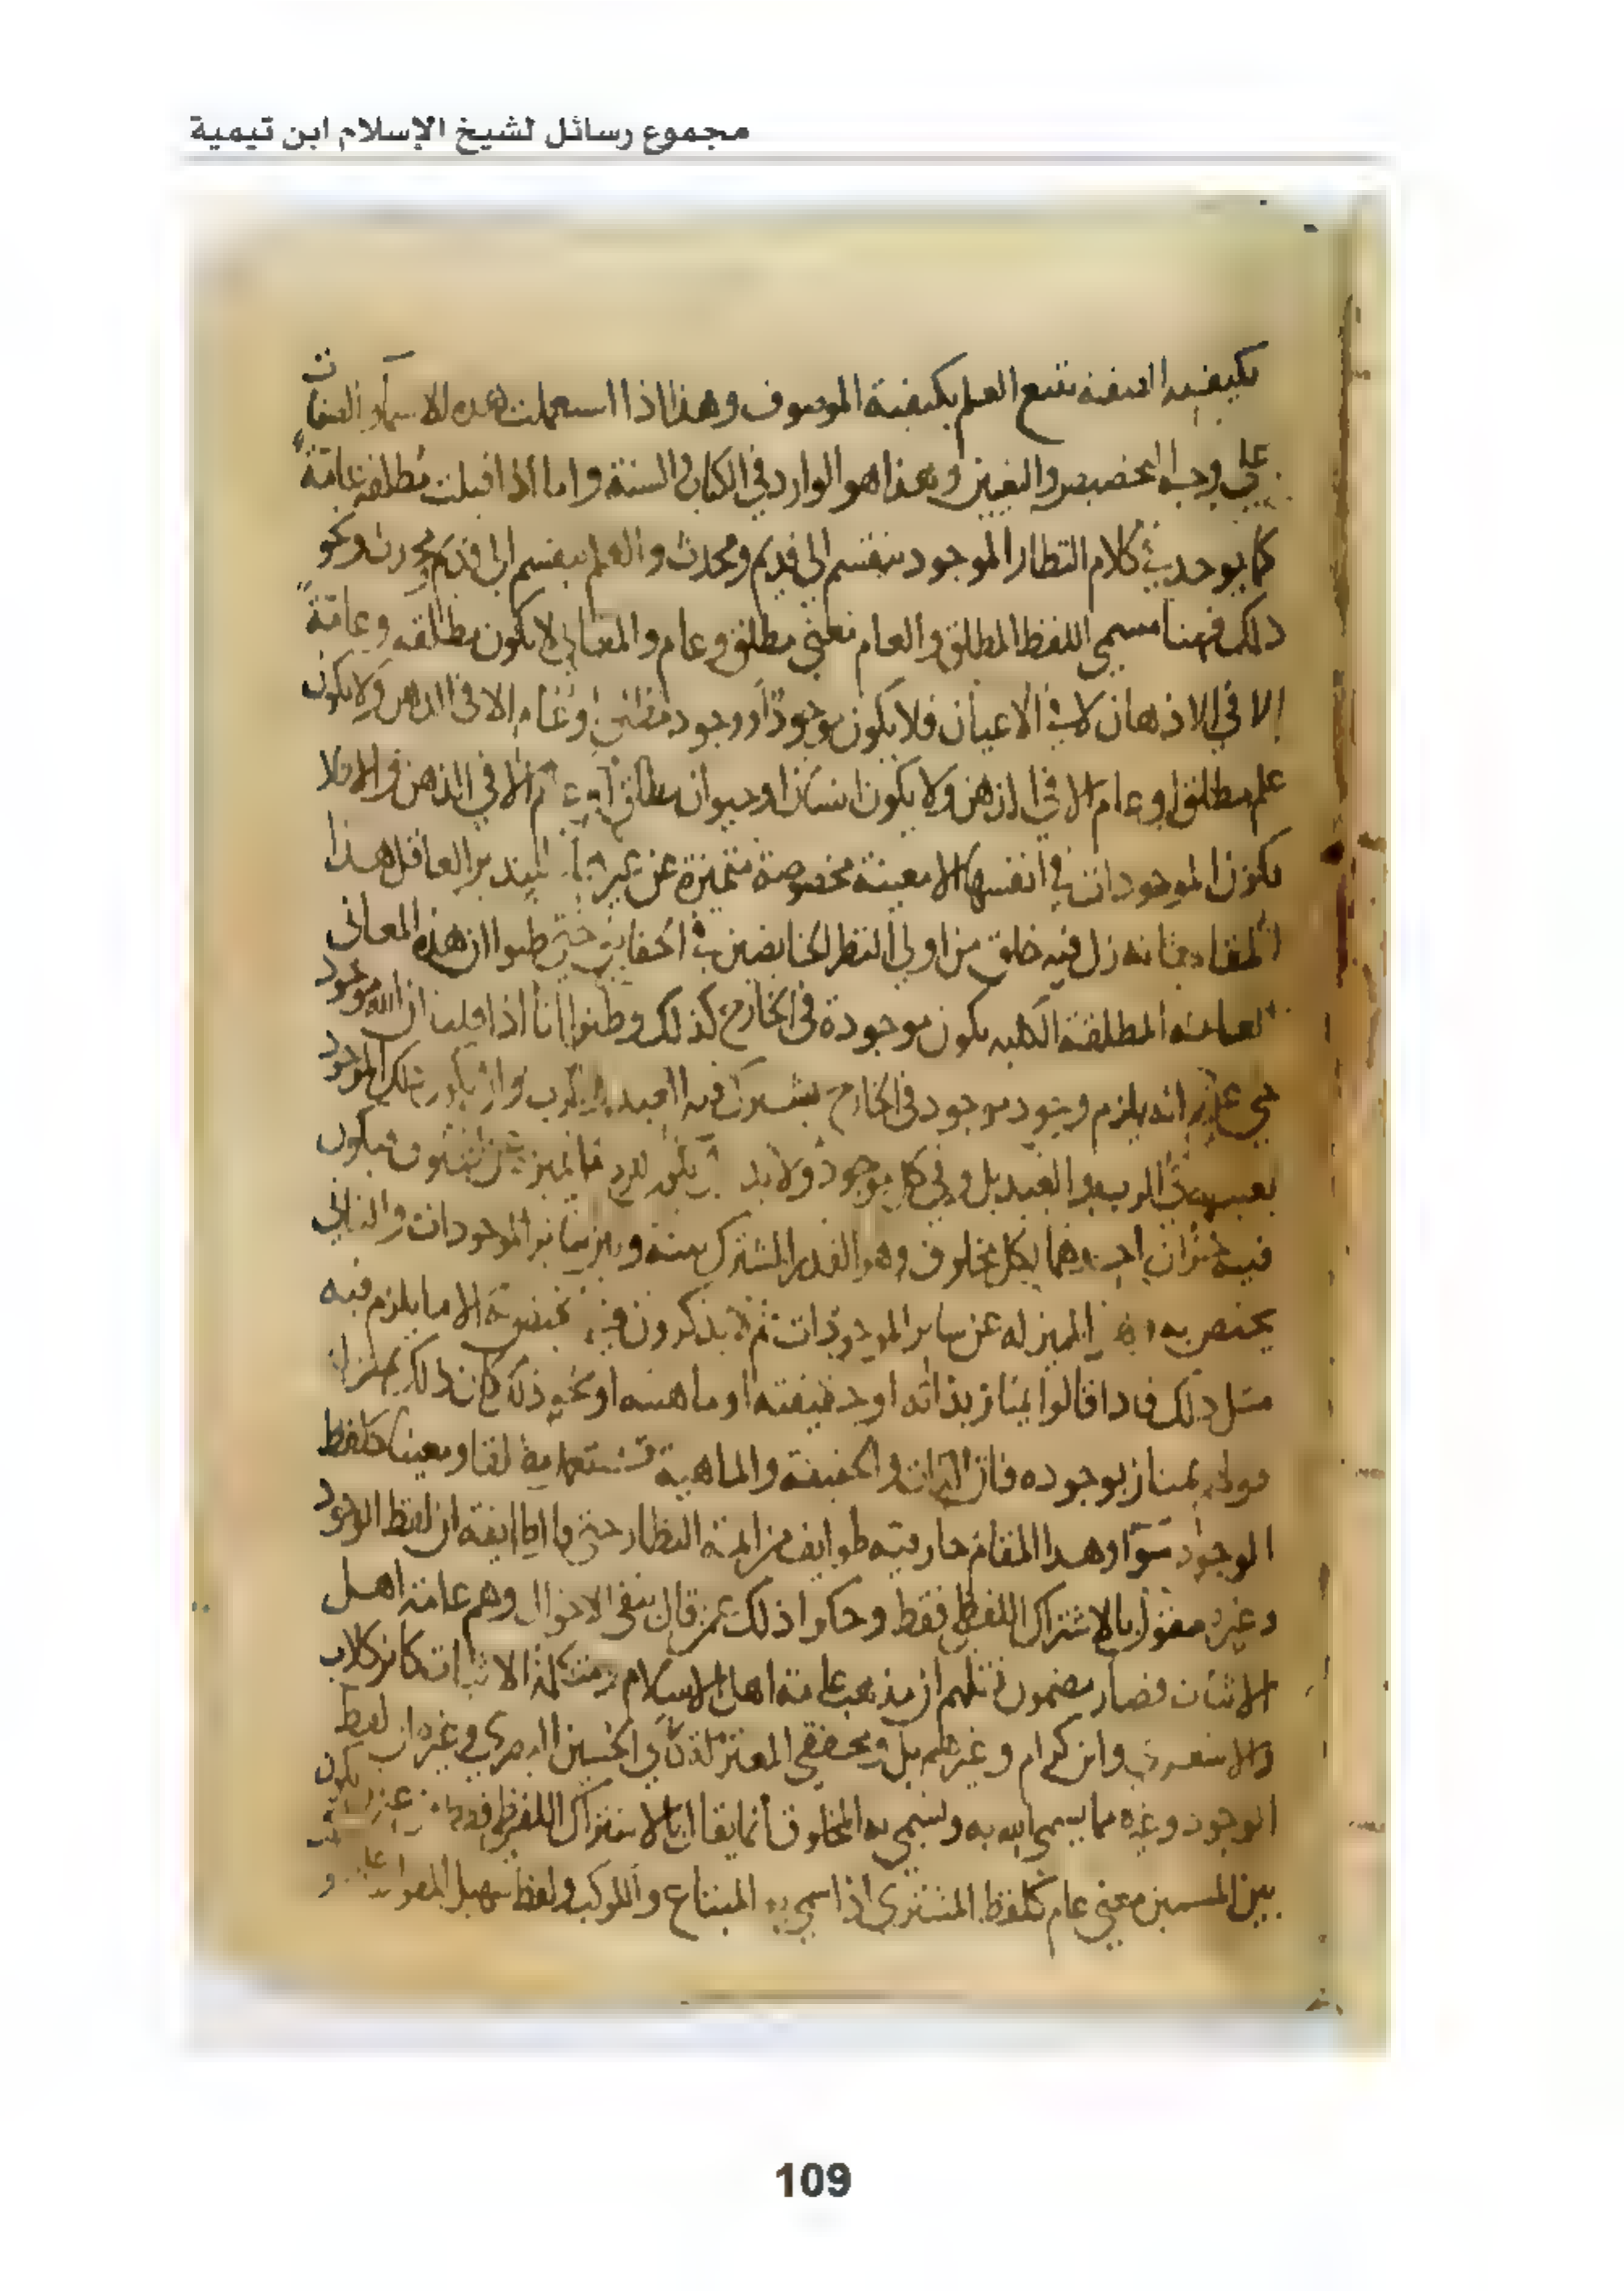 مجموع رسائل لشيخ الإسلام ابن تيمية
بكيفية الصفة تتبع العلم بكيفية الموصوف وهذا اذا استعملت هذه الاسماء والصفات
على وجه التخصيص والتعيين وهذا هو الوارد في الكتاب والسنة واما اذا قيلت مطلقة عامة
كما يوجد في كلام النظار الموجود ينقسم الى قديم ومحدث والعلم ينقسم الى قديم ومحدث ونحو
ذلك فهنا مسمى اللفظ المطلق والعام معنى مطلق وعام والمعاني لا يكون مطلقه وعامة
الا في الاذهان لا في الاعيان فلا يكون موجودا ووجود مطلق او عام الا في الذهن ولا يكون
علم مطلق او عام الا في الذهن ولا يكون انسان او حيوان مطلق او عام الا في الذهن والا فلا
تكون الموجودات في انفسها الا معينة مخصوصة متميزة عن غيرها فليتدبر العاقل هذا
المقام فانه زل فيه خلق من اولي النظر الخايضين في الحقايق حتى ظنوا ان هذه المعاني
العامة المطلقة الكليه يكون موجودة في الخارج كذلك وظنوا انا اذا قلنا ان الله موجود
حي عليم انه يلزم وجود موجود في الخارج يشترك فيه العبد والرب وان يكون ذلك الموجود
بعينه في الرب والعبد بل وفي كل موجود ولا بد ان يكون للرب ما يميزه عن المخلوق فيكون
فيه جزان احدهما لكل مخلوق وهو القدر المشترك بينه وبين ساير الموجودات والثاني
يختص به وهو المميز له عن ساير الموجودات ثم لا يذكرون فيما يختص به الا ما يلزم فيه
مثل ذلك فاذا قالوا يمتاز بذاته او حقيقته او ماهيته او نحو ذلك كان ذلك بمنزلة
قولهم يمتاز بوجوده فان الذات والحقيقة والماهية تستعمل مطلقا ومعينا كلفظ
الوجود سوا وهذا المقام حار فيه طوايف من ايمة النظار حتى قال طايفة ان لفظ الوجود
وغيره مقول بالاشتراك اللفظي فقط وحكوا ذلك عمن قال بنفي الاحوال وهم عامة اهل
الاثبات فصار مضمون نقلهم ان مذهب عامة اهل الاسلام ومتكلمة الاثبات كابن كلاب
والاشعري وابن كرام وغيرهم بل ومحققي المعتزلة كابي الحسين البصري وغيره ان لفظ
الوجود وغيره مما يسمى الله به ويسمى به المخلوق انما يقال بالاشتراك اللفظي فقط من غير ان يكون
بين المسميين معنى عام كلفظ المشتري اذا سمي به المبتاع والكوكب ولفظ سهيل المقول على
109